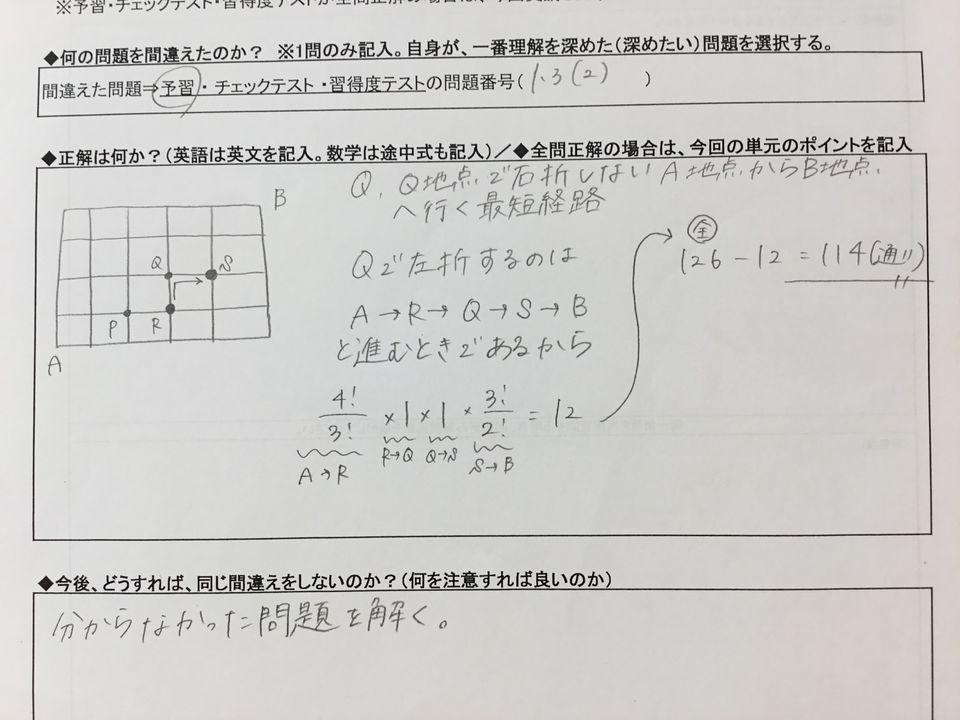 ◆何の問題を間違えたのか? ※1問のみ記入。自身が、一番理解を深めた(深めたい)問題を選択する。
間違えた問題⇒予習・チェックテスト・習得度テストの問題番号( 1.3(2) )
◆正解は何か?(英語は英文を記入。数学は途中式も記入)/◆全問正解の場合は、今回の単元のポイントを記入
Q. Q地点で右折しないA地点からB地点
へ行く最短経路
B
Q S
P R
A
Qで左折するのは
A→R→Q→S→B
と進むときであるから
4!/3! ×1×1× 3!/2! = 12
A→R R→Q Q→S S→B
全
126-12=114(通り)
◆今後、どうすれば、同じ間違えをしないのか?(何を注意すれば良いのか)
分からなかった問題を解く。